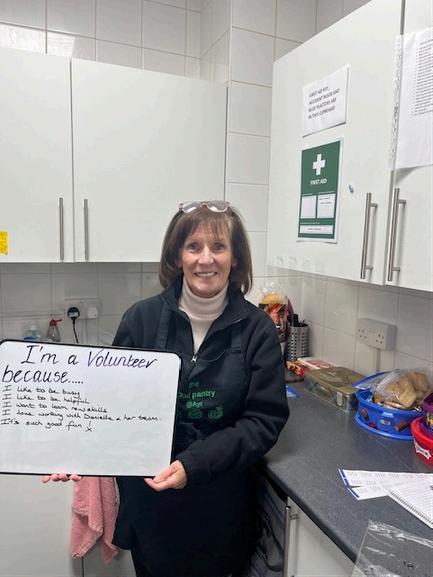 FIRST AID KIT,
ACCIDENT BOOK AND
BLUE PLASTERS ARE
IN THIS CUPBOARD
FIRST AID
I'm a Volunteer
because.....
I like to be busy
I like to be helpful
I want to learn new skills
I love working with Danielle & her team.
It's such good fun x
the
food pantry
@Ayr